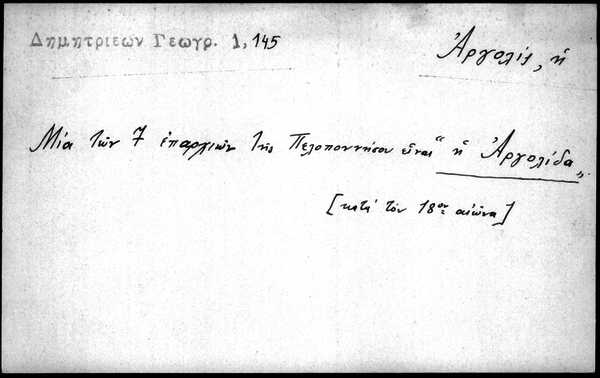 Δημητριεων Γεωγρ. 1, 145
Ἀργολίς, ἡ
Μία τῶν 7 ἐπαρχιῶν τῆς Πελοποννήσου εἶναι "ἡ Ἀργολίδα"
[κατὰ τὸν 18ον αἰῶνα]